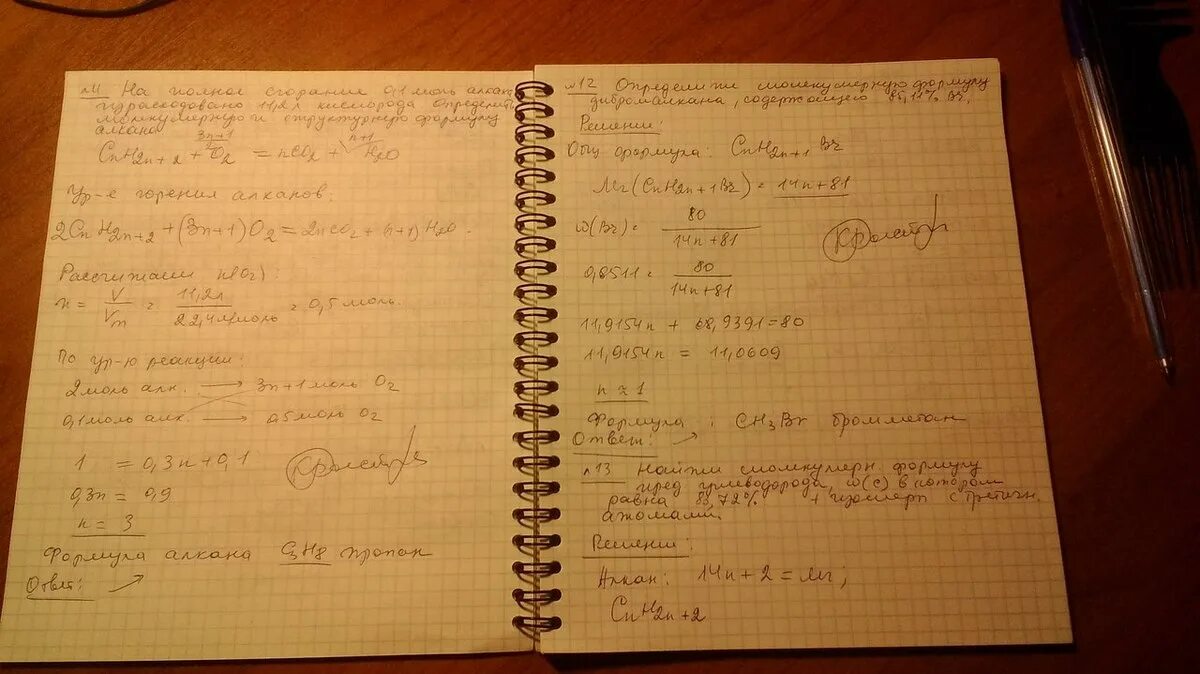 №4 На полное сгорание 0,1 моль алкана
израсходовано 11,2л кислорода. Определить
молекулярную и структурную формулу
алкана
3n+1 n+1
2
CnH2n+2 + O2 = nCO2 + H2O
Ур-е горения алканов:
2CnH2n+2 + (3n+1)O2 = 2nCO2 + (n+1)H2O.
Рассчитаем n(O2):
n = V/Vm = 11,2л/22,4л/моль = 0,5 моль.
По ур-ю реакции:
2моль алк. → 3n+1 моль O2
0,1моль алк. → 0,5моль O2
1 = 0,3n+0,1
0,3n = 0,9
n = 3
Формула алкана C3H8 пропан
Ответ:
№12 Определили молекулярную формулу
дибромалкана, содержащего 85,11% Br.
Решение:
Общ формула: CnH2n+1 Br
Mr(CnH2n+1Br) = 14n+81
ω(Br) = 80/14n+81
0,8511 = 80/14n+81
11,9154n + 68,9391=80
11,9154n = 11,0609
n ≈ 1
Формула : CH3Br бромметан
Ответ:
№13 Найти молекулярн. формулу
пред углеводорода, ω(C) в котором
равна 85,72% + изомеры с третичн.
атомами.
Решение:
Алкан: 14n+2 = Mr;
CnH2n+2